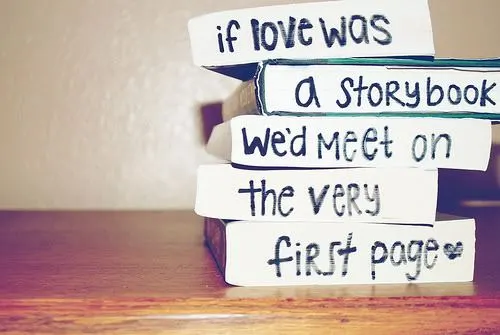 if love was
a storybook
we'd meet on
the very
first page♥